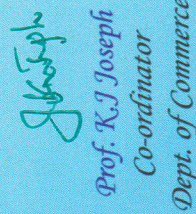 Prof. K.J Joseph
Co-ordinator
Dept. of Commerce